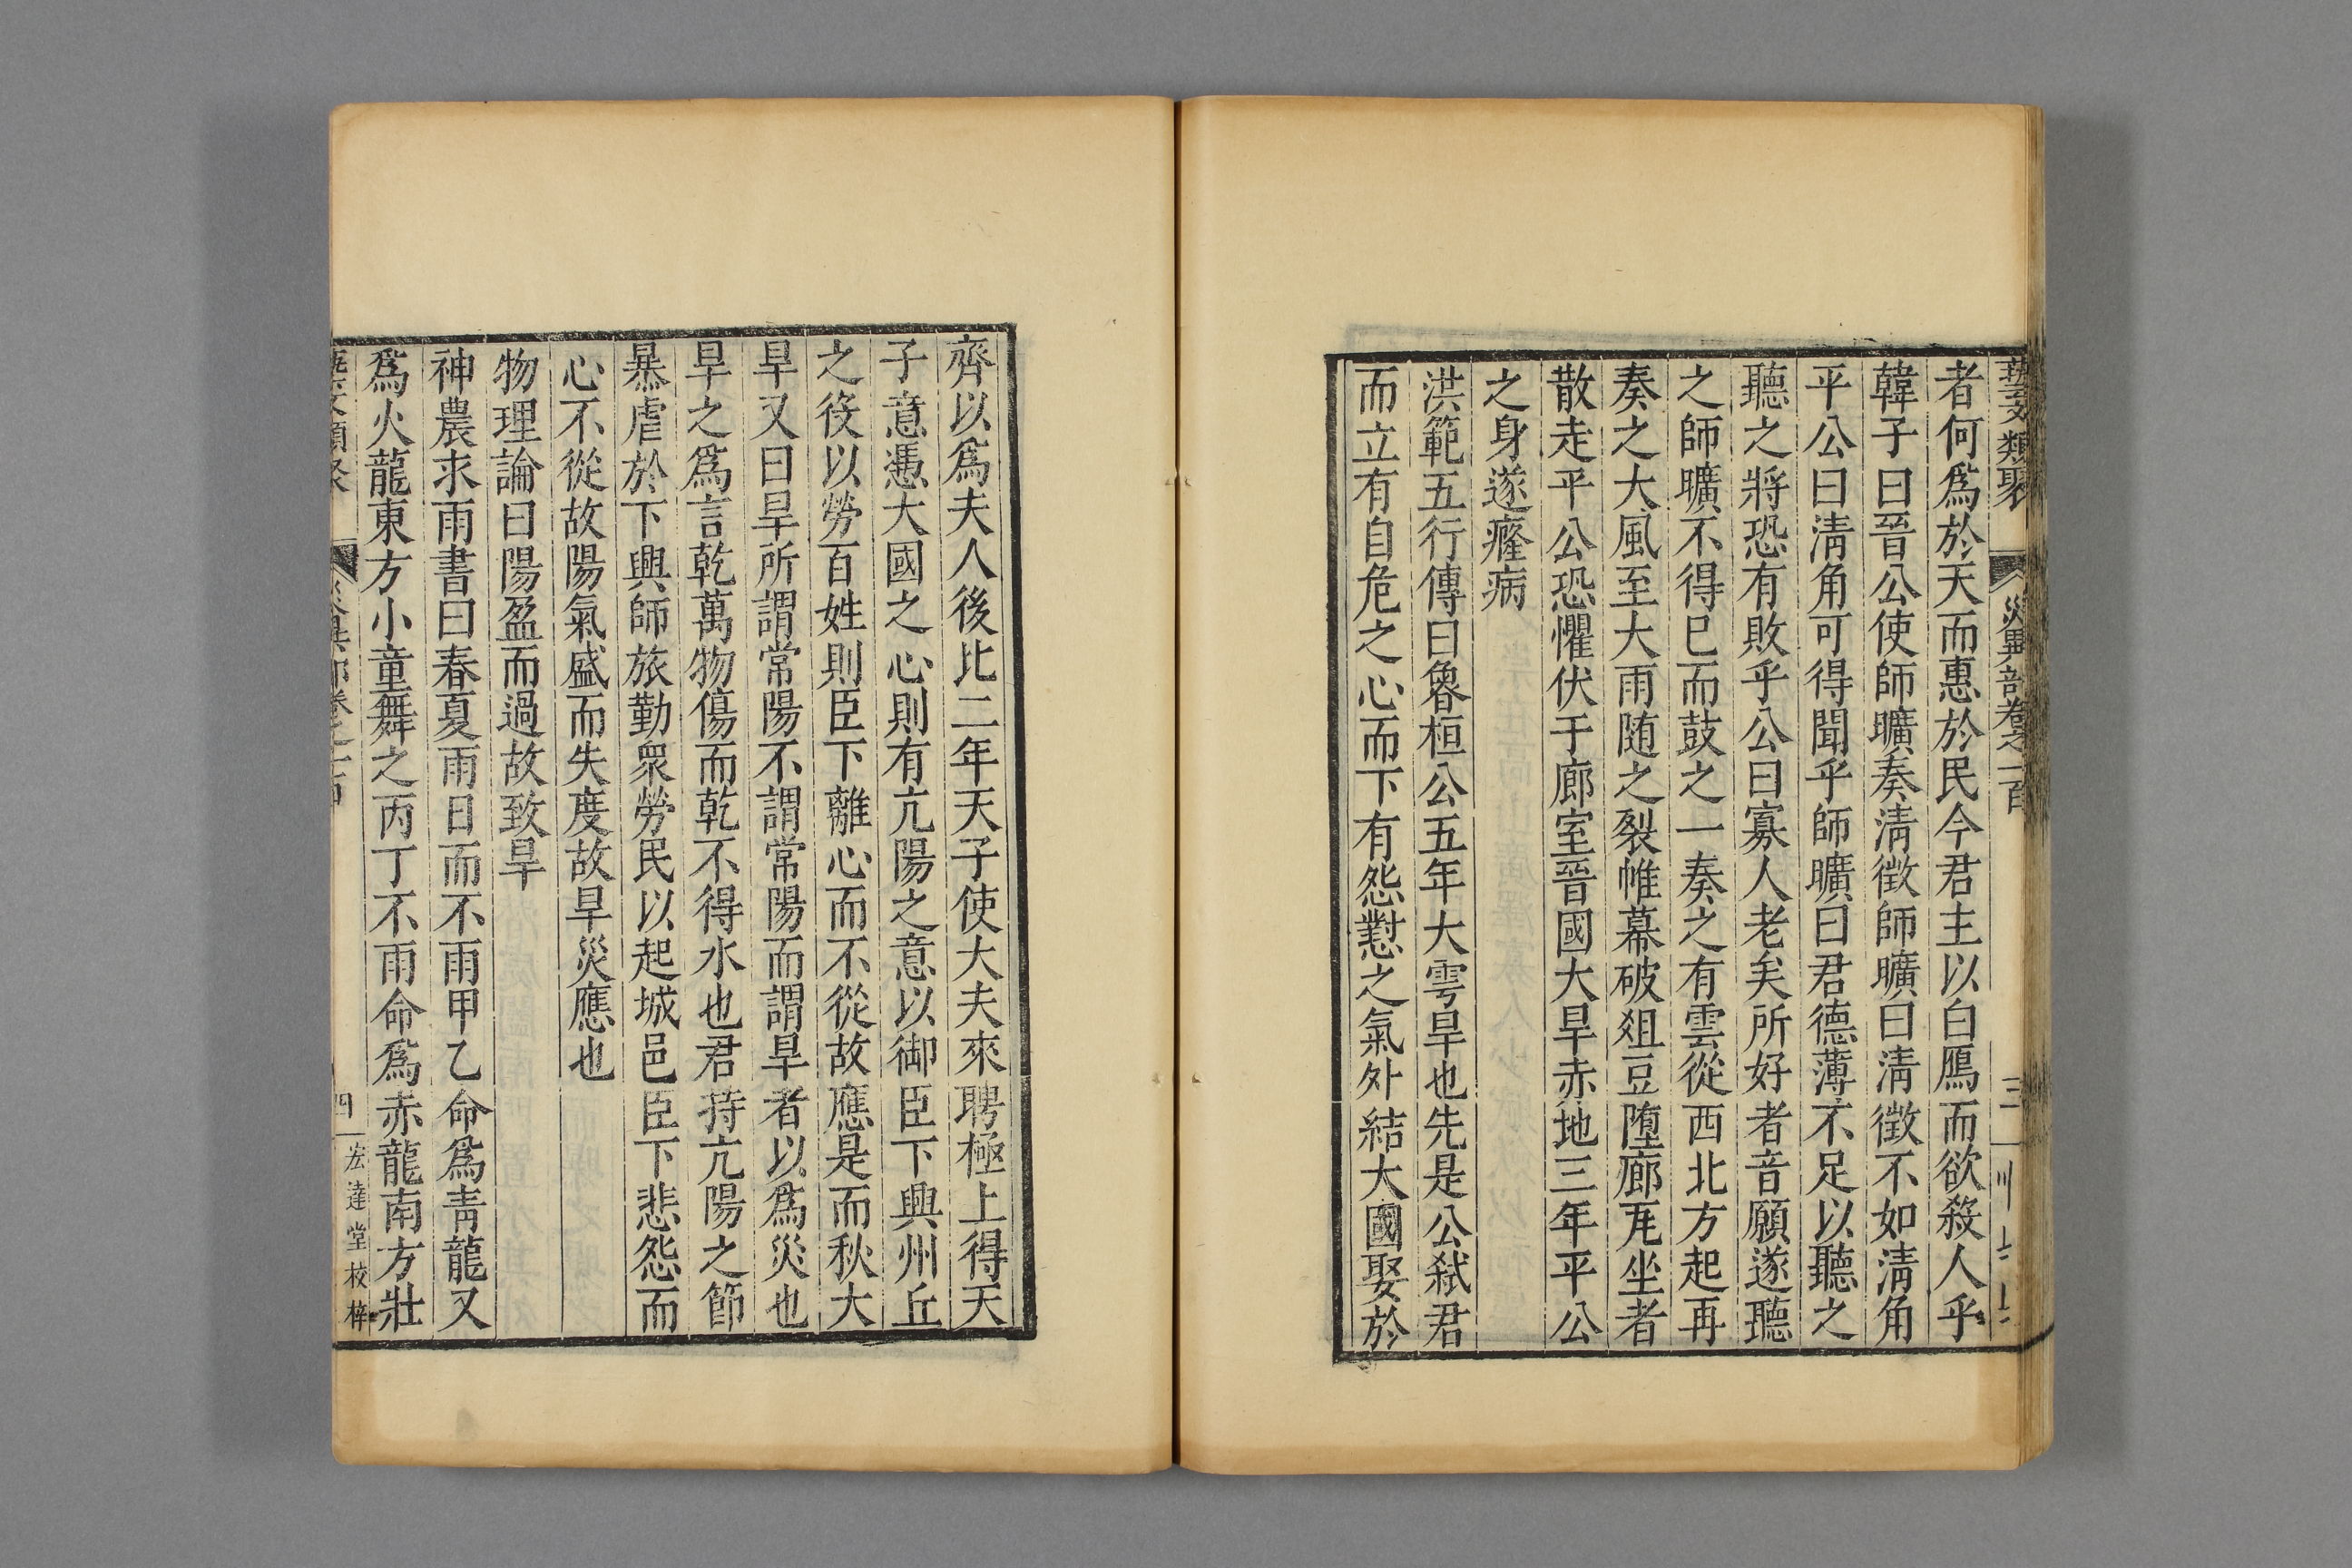 藝文類聚 災異部卷之一百 三
者何爲於天而惠於民今君主以白鴈而欲殺人乎
韓子曰晉公使師曠奏清徵師曠曰清徵不如清角
平公曰清角可得聞乎師曠曰君德薄不足以聽之
聽之將恐有敗乎公曰寡人老矣所好者音願遂聽
之師曠不得已而鼓之一奏之有雲從西北方起再
奏之大風至大雨随之裂帷幕破俎豆墮廊瓦坐者
散走平公恐懼伏于廊室晉國大旱赤地三年平公
之身遂癃病
洪範五行傳曰魯桓公五年大雩旱也先是公弑君
而立有自危之心而下有怨懟之氣外結大國娶於
齊以爲夫人後比二年天子使大夫來聘極上得天
子意憑大國之心則有亢陽之意以御臣下興州丘
之役以勞百姓則臣下離心而不從故應是而秋大
旱又曰旱所謂常陽不謂常陽而謂旱者以爲災也
旱之爲言乾萬物傷而乾不得水也君持亢陽之節
暴虐於下興師旅勤衆勞民以起城邑臣下悲怨而
心不從故陽氣盛而失度故旱災應也
物理論曰陽盈而過故致旱
神農求雨書曰春夏雨日而不雨甲乙命爲青龍又
爲火龍東方小童舞之丙丁不雨命爲赤龍南方壯
藝文類聚 災異部卷之一百 四 宏達堂校梓